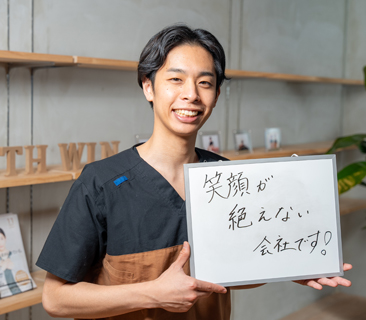 TH WIN
笑顔が
絶えない
会社です!